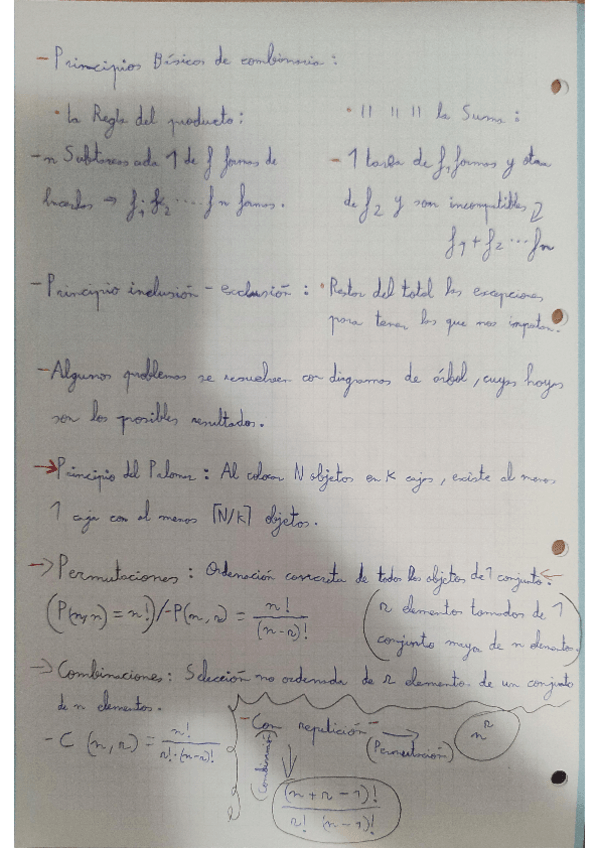 - Principios Básicos de combinaria :
• La Regla del producto :
- n Subtareas cada 1 de f formas de
hacerlas → f₁ · f₂ ···· fn formas.
• 11 11 11 la Suma :
- 1 tarea de f₁ formas y otra
de f₂ y son incompatibles
f₁ + f₂ ··· fn
- Principio inclusión - exclusión : • Restar del total las excepciones
para tener los que nos importan.
- Algunos problemas se resuelven con digramas de árbol, cuyas hojas
son los posibles resultados.
→ Principio del Palomar : Al colocar N objetos en K cajas, existe al menos
1 caja con al menos ⌈N/K⌉ objetos.
→ Permutaciones : Ordenación concreta de todos los objetos de 1 conjunto. ←
(P(n,n) = n!) / - P(n, r) = n! / (n-r)!
(r elementos tomados de 1
conjunto mayor de n elementos.)
→ Combinaciones : Selección no ordenada de r elemento. de un conjunto
de n elementos.
- C (n, r) = n! / r! · (n-r)!
- Con repetición - → (Permutación) nʳ
(Combinación)
(n + r - 1)! / r! (n-1)!